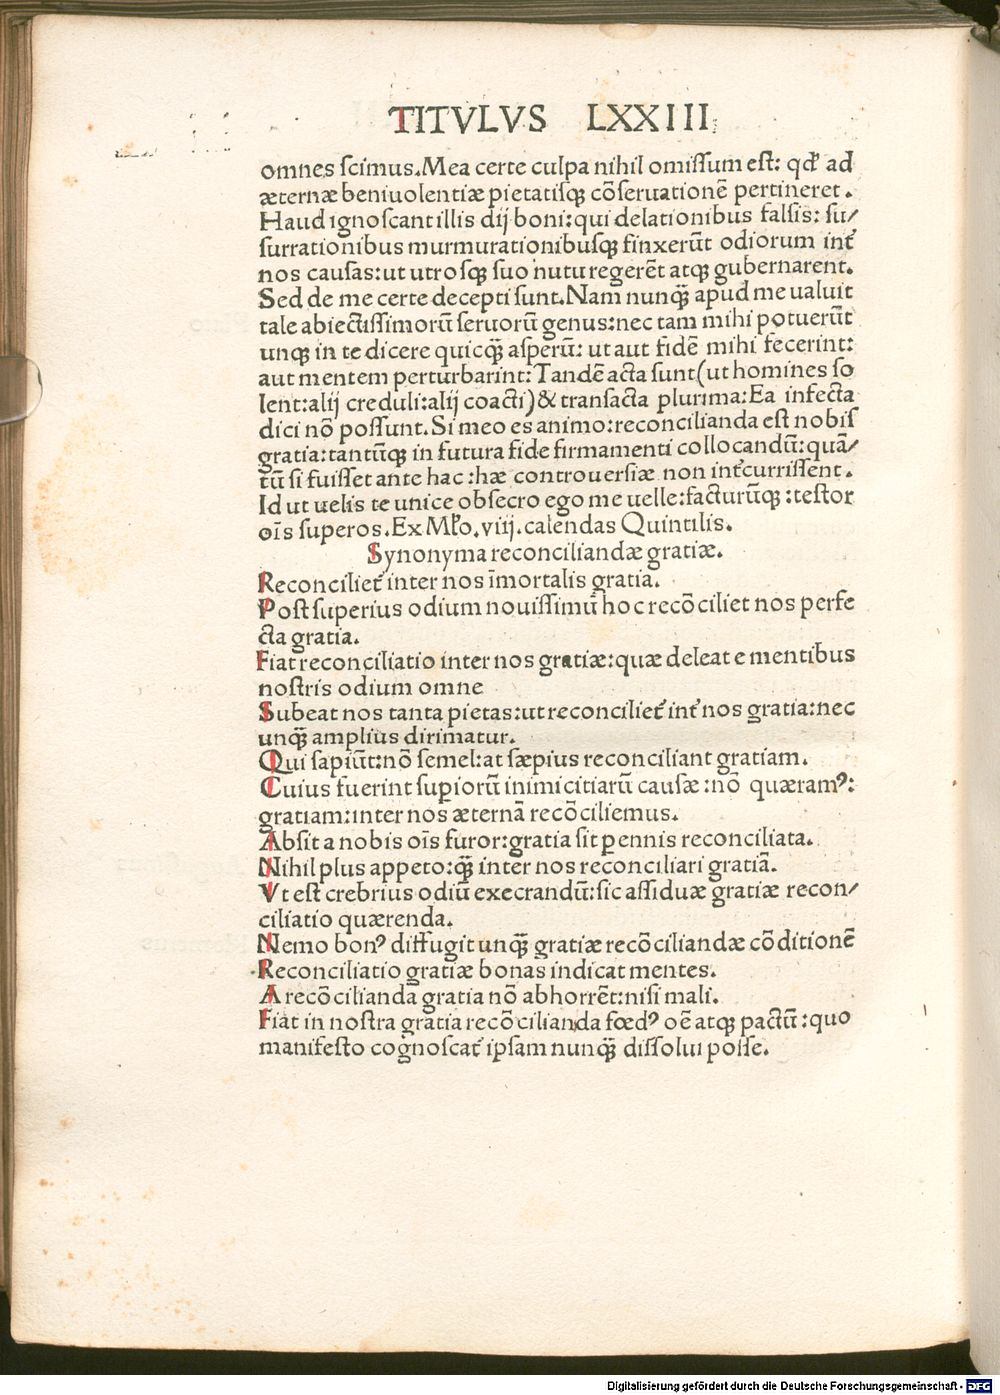 TITVLVS LXXIIII
omnes scimus. Mea certe culpa nihil omissum est: qđ ad
æternæ beniuolentiæ pietatisq; cōseruationē pertineret.
Haud ignoscant illis dij boni: qui delationibus falsis: su/
surrationibus murmurationibusq; finxerūt odiorum int̄
nos causas: ut utrosq; suo nutu regerēt atq; gubernarent.
Sed de me certe decepti sunt. Nam nunq̄ apud me ualuit
tale abiectissimorū seruorū genus: nec tam mihi potuerūt
unq̄ in te dicere quicq̄ asperū: ut aut fidē mihi fecerint:
aut mentem perturbarint: Tandē acta sunt (ut homines so
lent: alij creduli: alij coacti) & transacta plurima: Ea infecta
dici nō possunt. Si meo es animo: reconcilianda est nobis
gratia: tantūq; in futura fide firmamenti collocandū: quā/
tū si fuisset ante hac: hæ controuersiæ non int̄currissent.
Id ut uelis te unice obsecro ego me uelle: facturūq;: testor
oīs superos. Ex Mło. viij. calendas Quintilis.
Synonyma reconciliandæ gratiæ.
Reconciliet̄ inter nos īmortalis gratia.
Post superius odium nouissimū hoc recōciliet nos perfe
cta gratia.
Fiat reconciliatio inter nos gratiæ: quæ deleat e mentibus
nostris odium omne
Subeat nos tanta pietas: ut reconciliet̄ int̄ nos gratia: nec
unq̄ amplius dirimatur.
Qui sapiūt: nō semel: at sæpius reconciliant gratiam.
Cuius fuerint supiorū inimicitiarū causæ: nō quæramꝰ:
gratiam: inter nos æternā recōciliemus.
Absit a nobis oīs furor: gratia sit ꝑennis reconciliata.
Nihil plus appeto: q̄ inter nos reconciliari gratiā.
Vt est crebrius odiū execrandū: sic assiduæ gratiæ recon/
ciliatio quærenda.
Nemo bonꝰ diffugit unq̄ gratiæ recōciliandæ cōditionē
Reconciliatio gratiæ bonas indicat mentes.
A recōcilianda gratia nō abhorrēt: nisi mali.
Fiat in nostra gratia recōcilianda fœdꝰ oē atq; pactū: quo
manifesto cognoscat̄ ipsam nunq̄ dissolui posse.
Digitalisierung gefördert durch die Deutsche Forschungsgemeinschaft - DFG